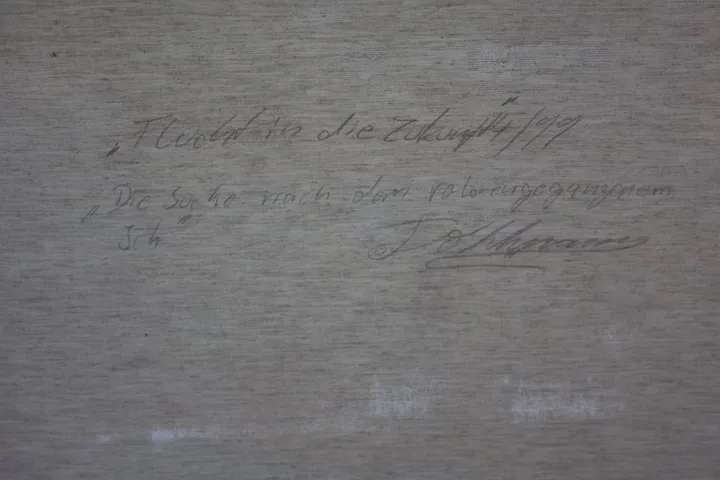 „Flucht in die Zukunft"/99
„Die Suche nach dem verlorengegangenem
Ich"